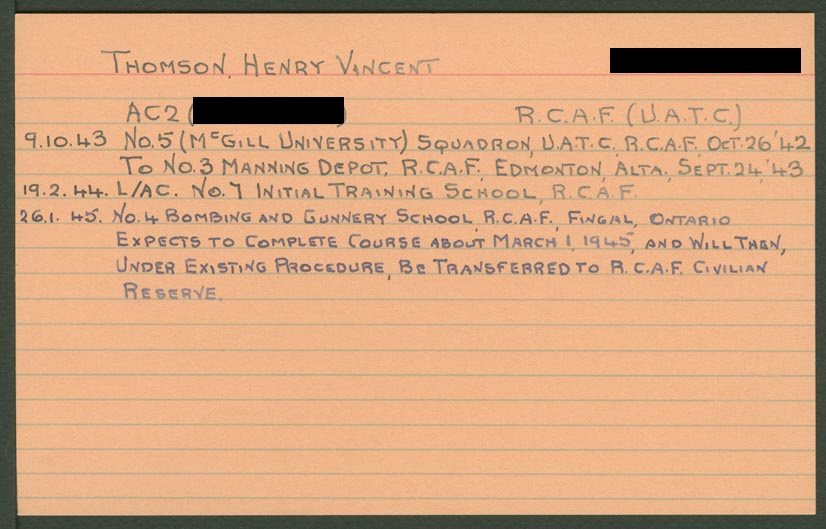 THOMSON, HENRY VINCENT
AC2 ( ) R.C.A.F. (U.A.T.C.)
9.10.43 No. 5 (McGILL UNIVERSITY) SQUADRON, U.A.T.C., R.C.A.F. OCT. 26 '42
TO NO. 3 MANNING DEPOT, R.C.A.F., EDMONTON, ALTA, SEPT. 24, '43
19.2.44. L/AC. No. 7 INITIAL TRAINING SCHOOL, R.C.A.F.
26.1.45. No. 4 BOMBING AND GUNNERY SCHOOL, R.C.A.F., FINGAL, ONTARIO
EXPECTS TO COMPLETE COURSE ABOUT MARCH 1, 1945, AND WILL THEN,
UNDER EXISTING PROCEDURE, BE TRANSFERRED TO R.C.A.F. CIVILIAN
RESERVE.